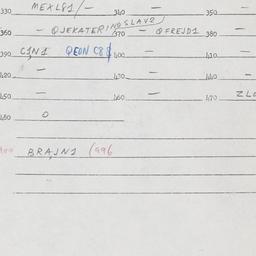 330 MEXL81/— 340 — 350 —
360 — QJEKATERINOSLAV2 370 — QFREJD1 380 —
390 C1N1 QEON C8 400 — 410 —
420 — 430 — 440 —
450 — 460 — 470 ZL
480 0
BRAJN1 1996